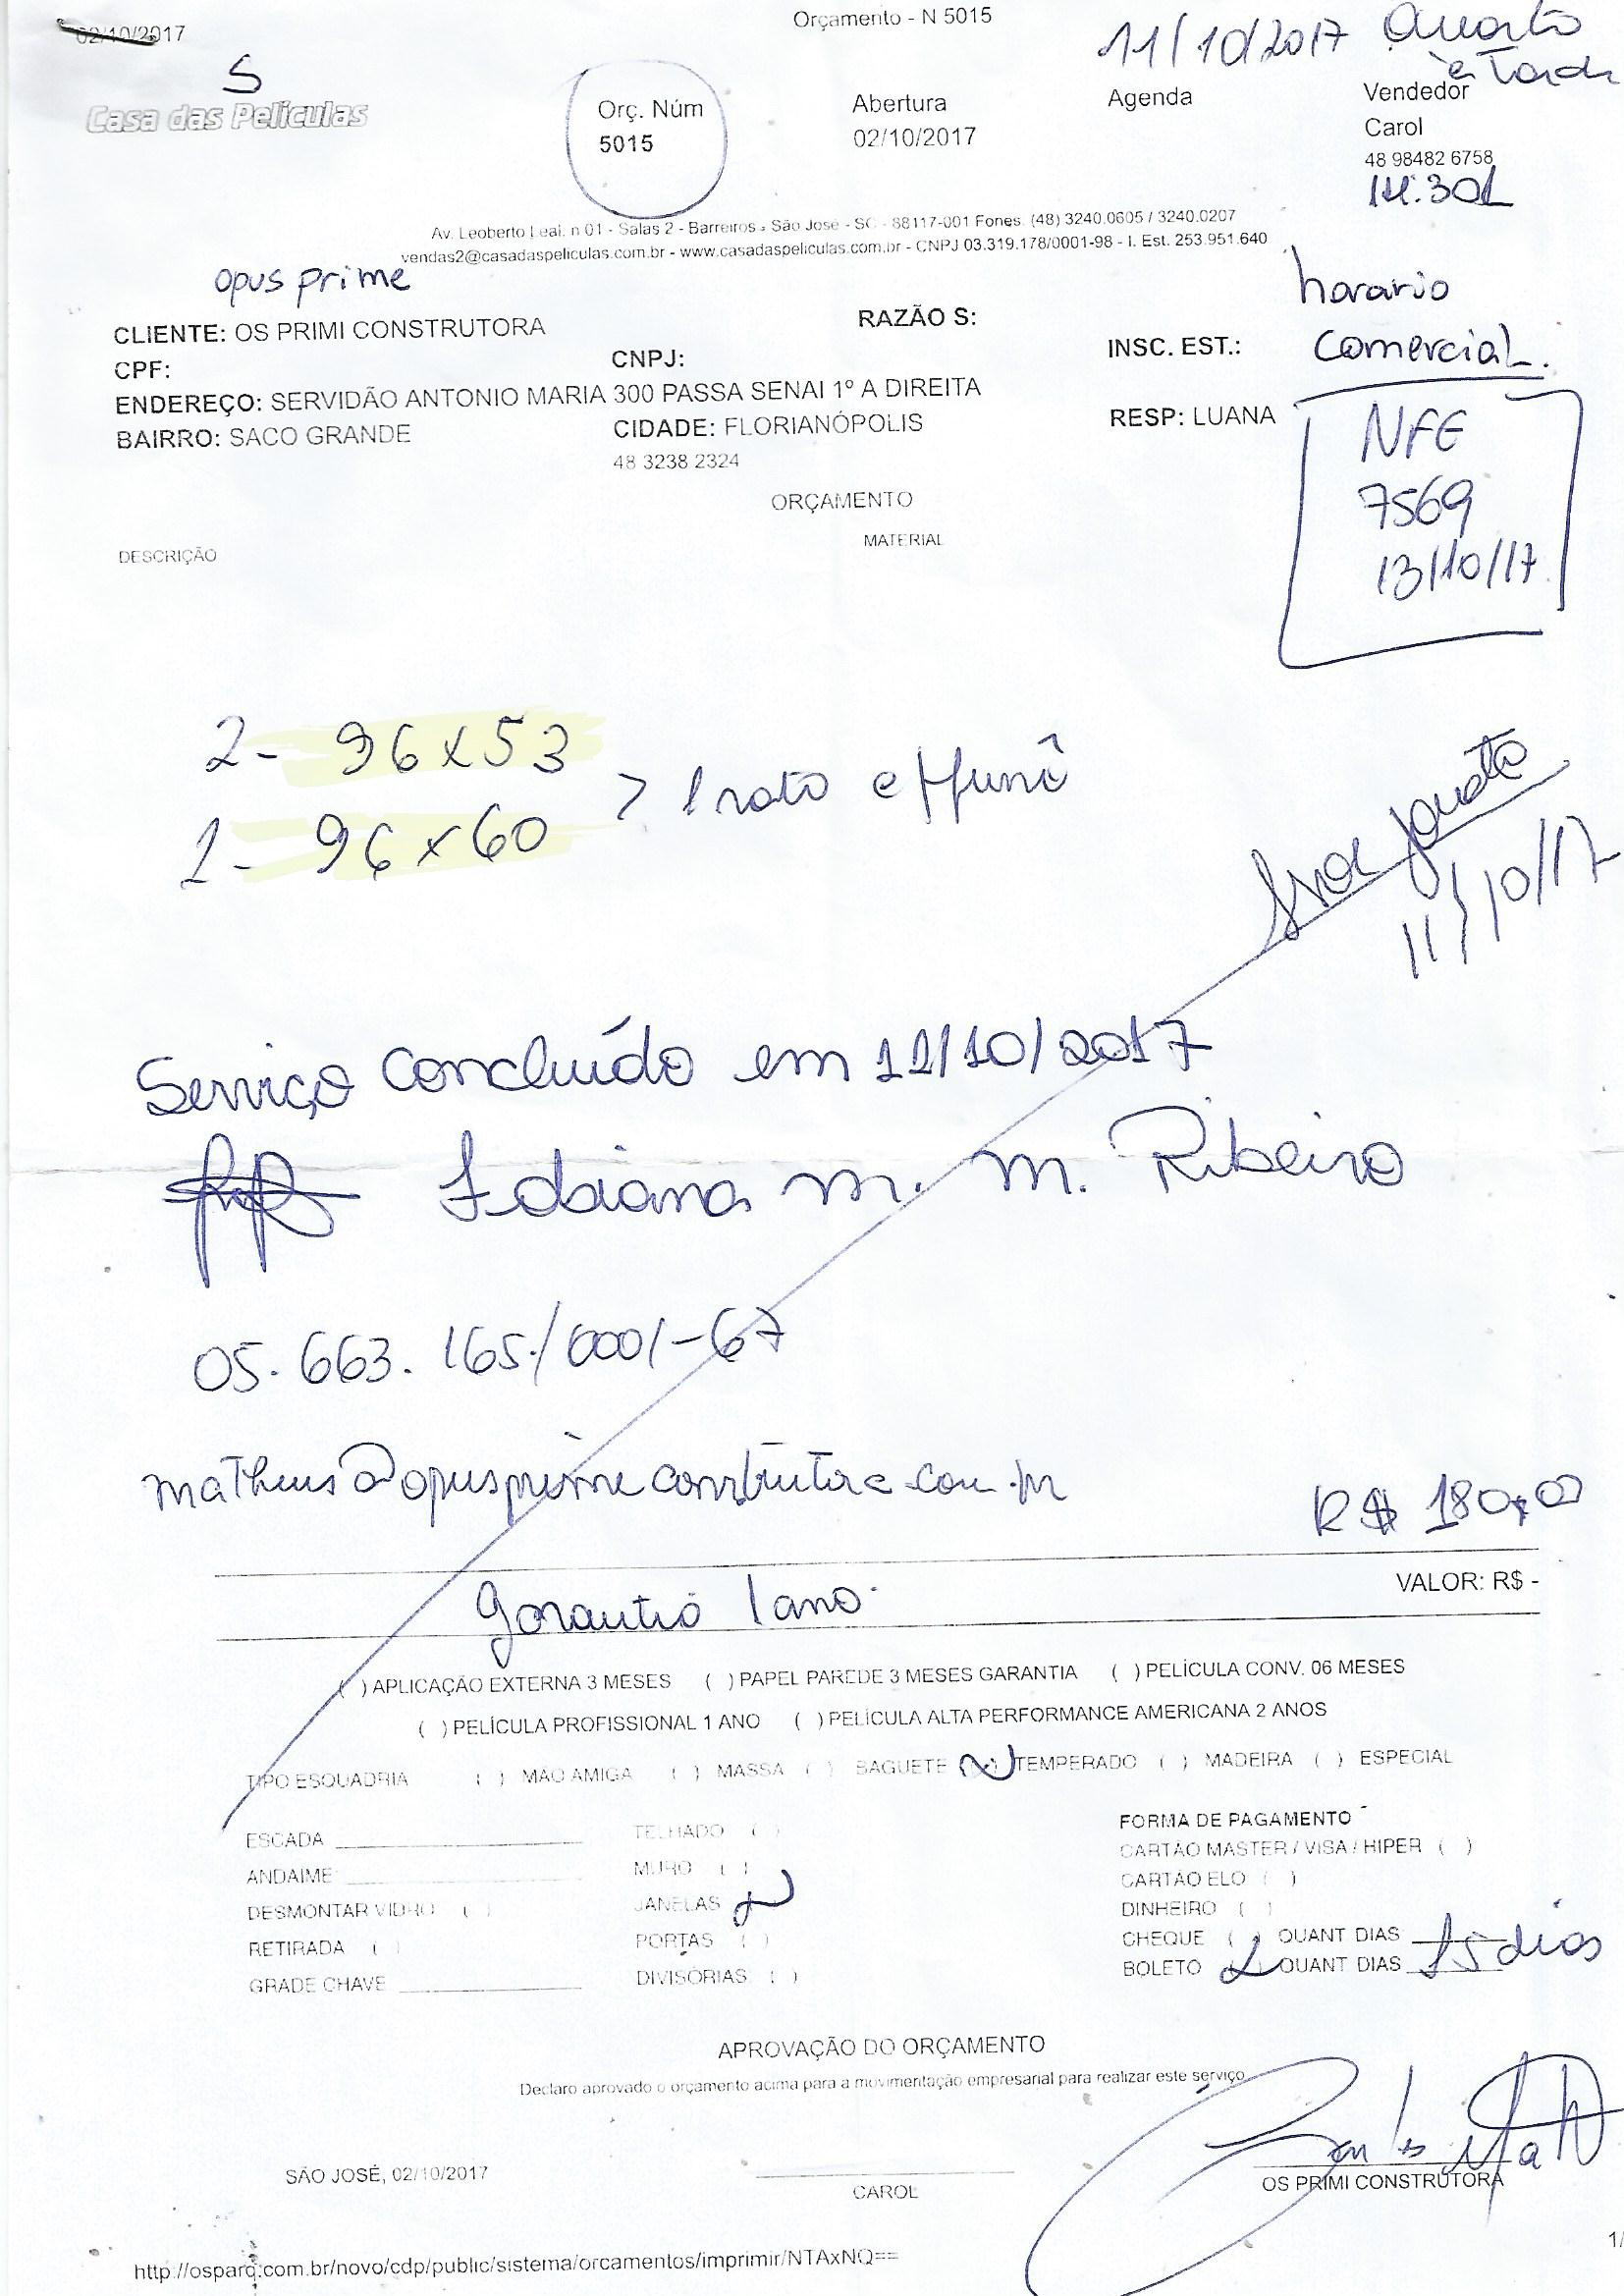 02/10/2017
Orçamento - N 5015
11/10/2017 Quarta
à Tarde
S
Casa das Películas
Orç. Núm
5015
Abertura
02/10/2017
Agenda
Vendedor
Carol
48 98482 6758
14:30h
Av. Leoberto Leal, n 01 - Salas 2 - Barreiros - São José - SC - 88117-001 Fones. (48) 3240.0605 / 3240.0207
vendas2@casadaspeliculas.com.br - www.casadaspeliculas.com.br - CNPJ 03.319.178/0001-98 - I. Est. 253.951.640
opus prime
horario
comercial.
CLIENTE: OS PRIMI CONSTRUTORA
RAZÃO S:
CPF:
CNPJ:
INSC. EST.:
ENDEREÇO: SERVIDÃO ANTONIO MARIA 300 PASSA SENAI 1º A DIREITA
BAIRRO: SACO GRANDE
CIDADE: FLORIANÓPOLIS
RESP: LUANA
48 3238 2324
NFE
7569
13/10/17
ORÇAMENTO
DESCRIÇÃO
MATERIAL
2- 96x53
1- 96x60
11/10/17
Serviço concluído em 11/10/2017
Fabiana m. m. Ribeiro
05.663.165/0001-67
matheus@opusprimeconstrutora.com.br
R$ 180,00
VALOR: R$ -
garantia 1 ano.
( ) APLICAÇÃO EXTERNA 3 MESES ( ) PAPEL PAREDE 3 MESES GARANTIA ( ) PELÍCULA CONV. 06 MESES
( ) PELÍCULA PROFISSIONAL 1 ANO ( ) PELÍCULA ALTA PERFORMANCE AMERICANA 2 ANOS
TIPO ESQUADRIA ( ) MÃO AMIGA ( ) MASSA ( ) BAGUETE ( ) TEMPERADO ( ) MADEIRA ( ) ESPECIAL
ESCADA
TELHADO ( )
FORMA DE PAGAMENTO -
ANDAIME
MURO ( )
CARTÃO MASTER / VISA / HIPER ( )
DESMONTAR VIDRO ( )
JANELAS
CARTÃO ELO ( )
RETIRADA ( )
PORTAS ( )
DINHEIRO ( )
GRADE CHAVE
DIVISÓRIAS ( )
CHEQUE ( ) QUANT DIAS
BOLETO ( ) QUANT DIAS 15 dias
APROVAÇÃO DO ORÇAMENTO
Declaro aprovado o orçamento acima para a movimentação empresarial para realizar este serviço
SÃO JOSÉ, 02/10/2017
CAROL
OS PRIMI CONSTRUTORA
http://osparq.com.br/novo/cdp/public/sistema/orcamentos/imprimir/NTAxNQ==
1/